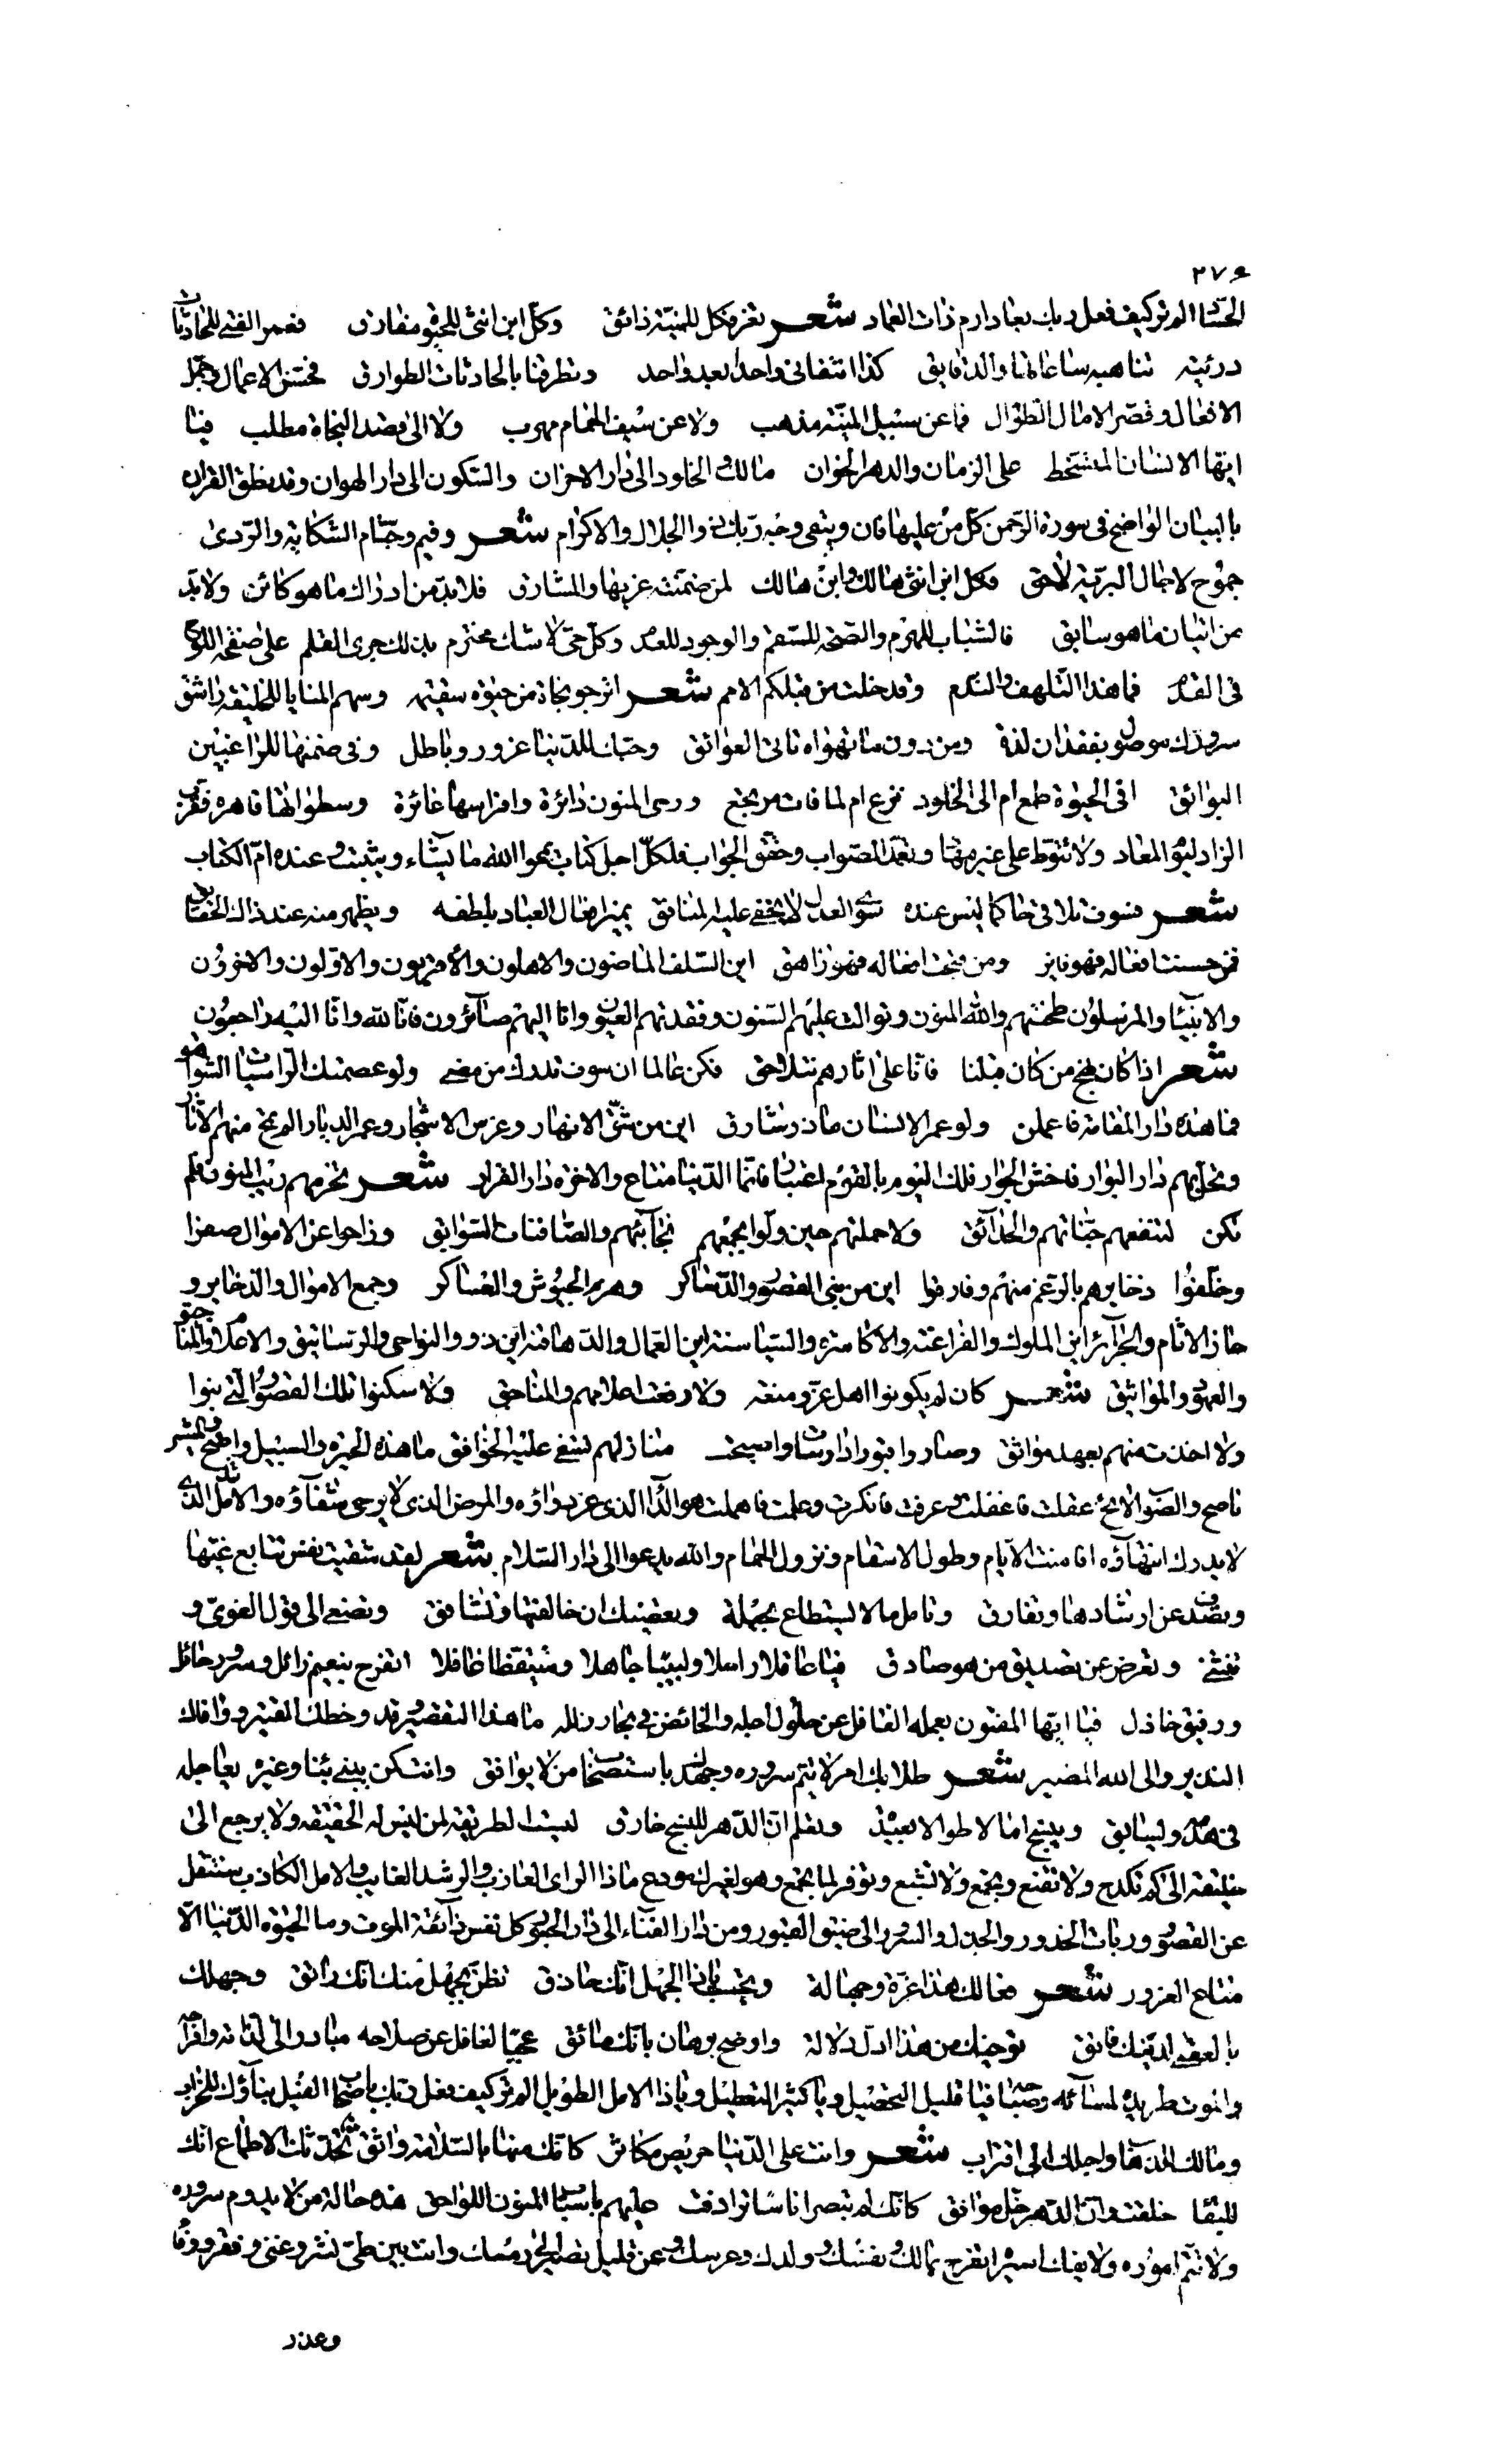 ٢٧٤
الحساب الم تر كيف فعل ربك بعاد ارم ذات العماد شعر تعز فكل للمنية ذائق وكل ابن انثى للحيوة مفارق فعمر الفتى للحادثات
درئية تناهبه ساعاتها والدقايق كذا انتفانى واحدا بعد واحد وتطرقنا بالحادثات الطوارق فحسن الاعمال وجمل
الافعال وقصر الامال الطوال فما عن سبيل المنية مذهب ولا عن سيف الحمام مهرب ولا الى قصد النجاة مطلب فيا
ايها الانسان المتسخط على الزمان والدهر الخوان مالك والخلود الى دار الاحزان والسكون الى دار الهوان وقد نطق القران
بالبيان الواضح فى سورة الرحمن كل من عليها فان ويبقى وجه ربك ذو الجلال والاكرام شعر وفيم وحتام الشكاية والردى
جموح لاجال البرية لاحق فكل ابن انثى هالك وابن هالك لمن ضمنته غربها والمشارق فلابد من ادراك ما هو كائن ولابد
من اتيان ما هو سابق فالشباب للهرم والصحة للسقم والوجود للعدم وكل حى لا شك مخترم بذلك جرى القلم على صفحة اللوح
فى القدم فما هذا التلهف والندم وقد خلت من قبلكم الامم شعر اترجو نجاة من حيوة سقيمة وسهم المنايا للخليقة راشق
سرورك موصول بفقدان لذة ومن دون ما تهواه تاتى العوائق وحبك للدنيا غرور وباطل وفى ضمنها للراغبين
البوائق افى الحيوة طمع ام الى الخلود نزع ام لما فات مرتجع ورحى المنون دائرة وافراسها غائرة وسطواتها قاهرة فقرب
الزاد ليوم المعاد ولا تتوط على غير مهاد وتعمد الصواب وحقق الجواب فلكل اجل كتاب يمحوا الله ما يشاء ويثبت وعنده ام الكتاب
شعر فسوف تلاقى حاكما ليس عنده سوى العدل لا يخفى عليه المنافق يميز افعال العباد بلطفه ويظهر منه عند ذاك الحقايق
فمن حسنت افعاله فهو فايز ومن قبحت افعاله فهو زاهق اين السلف الماضون والاهلون والاقربون والاولون والاخرون
والانبياء والمرسلون طحنتهم والله المنون وتوالت عليهم السنون وفقدتهم العيون وانا اليهم صائرون فانا لله وانا اليه راجعون
شعر اذا كان نهج من كان قبلنا فانا على اثارهم نتلاحق فكن عالما ان سوف تدرك من مضى ولو عصمتك الراسيات الشواهق
فما هذه دار المقامة فاعلمن ولو عمر الانسان ما ذر شارق اين من شق الانهار وغرس الاشجار وعمر الديار الم تمح منهم الاثار
وتحل بهم دار البوار فاخش الجوار فلك اليوم بالقوم اعتبار فانما الدنيا متاع والاخرة دار القرار شعر تخرمهم ريب المنون فلم
تكن لتنفعهم جناتهم والحدائق ولا حملتهم حين ولوا بجمعهم نجائبهم والصافنات السوابق وراحوا عن الاموال صفرا
وخلفوا ذخايرهم بالرغم منهم وفارقوا اين من بنى القصور والدساكر وهزم الجيوش والعساكر وجمع الاموال والذخاير و
حاز الاثام والجرائر اين الملوك والفراعنة والاكاسرة والسياسنة اين العمال والدهاقنة اين ذوو النواحى والرساتيق والاعلام والمناجيق
والعهود والمواثيق شعر كان لم يكونوا اهل عز ومنعة ولا رفعت اعلامهم والمناجق ولا سكنوا تلك القصور التى بنوا
ولا اخذت منهم بعهد مواثق وصاروا قبورا دارسات واصبحت منازلهم تسفى عليه الخوافق ما هذه الحيرة والسبيل واضح والمشير
ناصح والصواب لائح عقلت فاغفلت وعرفت فانكرت وعلمت فاهملت هو الداء الذى عز دواؤه والمرض الذى لا يرجى شفاؤه والامل الذى
لا يدرك انتهاؤه افامنت الايام وطول الاسقام ونزول الحمام والله يدعوا الى دار السلام شعر لقد شقيت نفس تتابع غيها
وتصدف عن ارشادها وتفارق وتامل ما لا يستطاع بحيلة وتعصيك ان خالفتها وتشاقق وتصغى الى قول الغوى و
تنثنى وتعرض عن تصديق من هو صادق فيا عاقلا راحلا ولبيبا جاهلا ومتيقظا غافلا اتفرح بنعيم زائل وسرور حائل
ورفيق خاذل فيا ايها المفتون بعمله الغافل عن حلول اجله والخائض فى بحار زلله ما هذا التقصير وقد وخطك القتير ووافاك
النذير والى الله المصير شعر طلابك امر لا يتم سروره وجهدك باستصحاب من لا يوافق وانت كمن يبنى بناء وغيره يعاجله
فى هدمه ويسابق وينسج امالا طوالا بعيدة وتعلم ان الدهر للنسج خارق ليست الطريقة لمن ليس له الحقيقة ولا يرجع الى
خليقة الى كم تكدح ولا تقنع وتجمع ولا تشبع وتوفر لما تجمع وهو لغيرك مودع ماذا الراى العازب والرشد الغايب والامل الكاذب ستنتقل
عن القصور وربات الخدور والجذل والسرور الى ضيق القبور ومن دار الفناء الى دار الحبور كل نفس ذائقة الموت وما الحيوة الدنيا الا
متاع الغرور شعر فعالك هذا غرة وجهالة وتحسب يا ذا الجهل انك حاذق تظن بجهل منك انك راتق وجهلك
بالعقبى لدينك فاتق توخيك من هذا ادل دلالة واوضح برهان بانك مائق عجبا لغافل عن صلاحه مبادر الى لذاته وافراحه
والموت طريده لمسائه وصباحه فيا قليل التحصيل ويا كثير التعطيل ويا ذا الامل الطويل الم تر كيف فعل ربك باصحاب الفيل بناؤك للخراب
ومالك للذهاب واجلك الى اقتراب شعر وانت على الدنيا حريص مكاثر كانك منها بالسلامة واثق تحدثك الاطماع انك
للبقا خلقت وان الدهر خل موافق كانك لم تبصر اناسا ترادفت عليهم باسباب المنون اللواحق هذه حالة من لا يدوم سروره
ولا تتم اموره ولا يفك اسيره اتفرح بمالك ونفسك وولدك وعرسك وعن قليل تصير الى رمسك وانت بين طى ونشر وغنى وفقر ووفا
وعذر